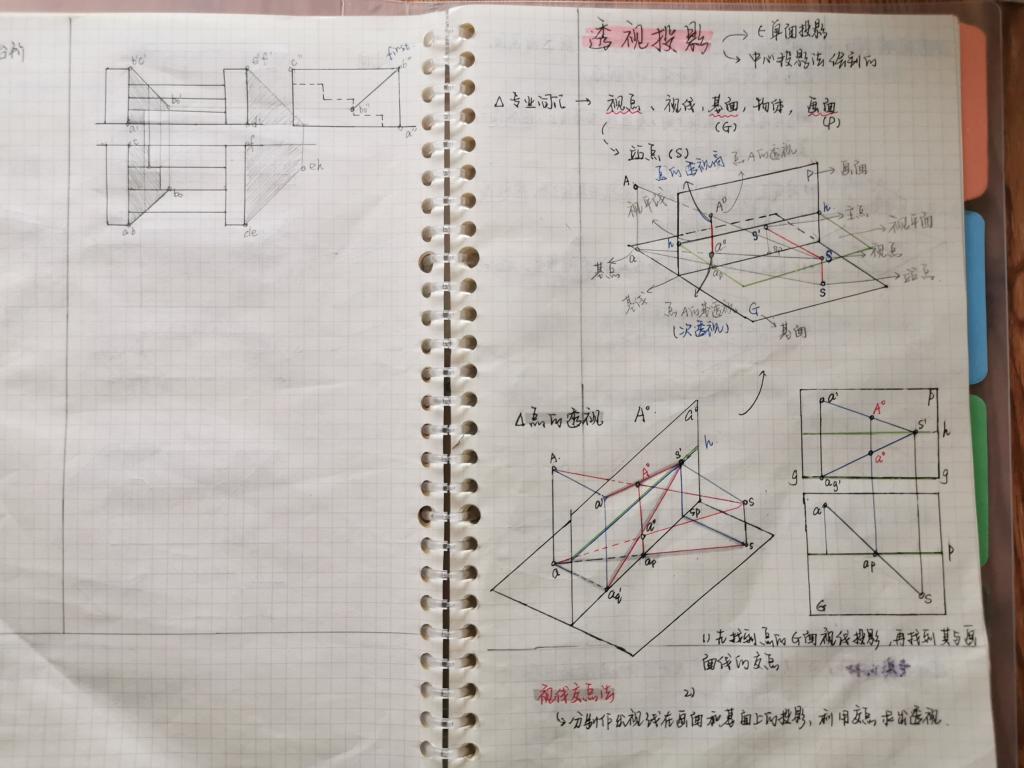 first
b'c'
d'f'
c"
b"
a"
a'
c
f
eh
ab
de
透视投影
单面投影
中心投影法绘制的
△专业词汇 → 视点、视线、基面、物体、画面
(G)
(P)
站点(S)
点的透视高
点A的透视
A
A°
P
画面
视平线
h
s'
h
主点
视平面
a
a°
S
视点
基点
s
站点
基线
点A的基透视
(次透视)
G
基面
△点的透视
A°
a°
h
A
A°
s'
a'
a°
sp
S
s
a
ap
ag'
a'
A°
P
s'
h
a°
g
ag'
g
a
ap
P
G
S
1) 先找到点的G面视线投影,再找到其与画
面线的交点
视线交点法
2)
分别作出视线在画面和基面上的投影,利用交点求出透视.